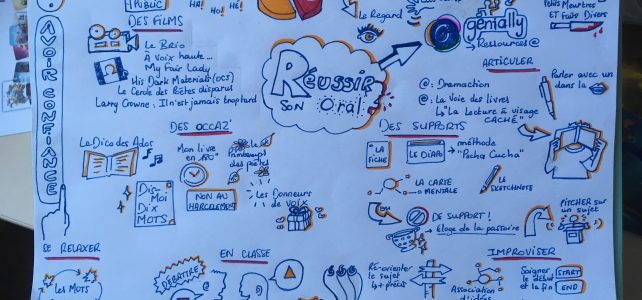 PUBLIC
HA!
HO!
HE!
Le Regard
genially
→ Ressources@
Petits Meurtres
Et Faits Divers
AVOIR CONFIANCE
DES FILMS
Le Brio
À Voix haute...
My Fair Lady
His Dark Materials (OCS)
Le Cercle des Poètes disparus
Larry Crowne : Il n'est jamais trop tard
RÉUSSIR
SON Oral
ARTICULER
@: Dramaction
@: La Voie des livres
↳ "La Lecture à visage
CACHÉ"
Parler avec un
dans la
DES OCCAZ'
Le Dico des Ados
Mon livre
en 180"
le
Printemps
des poètes
Dis-
Moi
Dix
MOTS
NON AU
HARCELEMENT
Les Donneurs
de voix
DES SUPPORTS
LA
FICHE
LE DIAPO
→ méthode
"Pecha Cucha"
LA CARTE
MENTALE
LE
SKETCHNOTE
DE SUPPORT !
éloge de la passoire
PITCHER SUR
un sujet
SE RELAXER
Les MOTS
EN CLASSE
DÉBATTRE
Ré-orienter
le sujet
IMPROVISER
Association
d'idées
Soigner le
début
et la fin
START
END